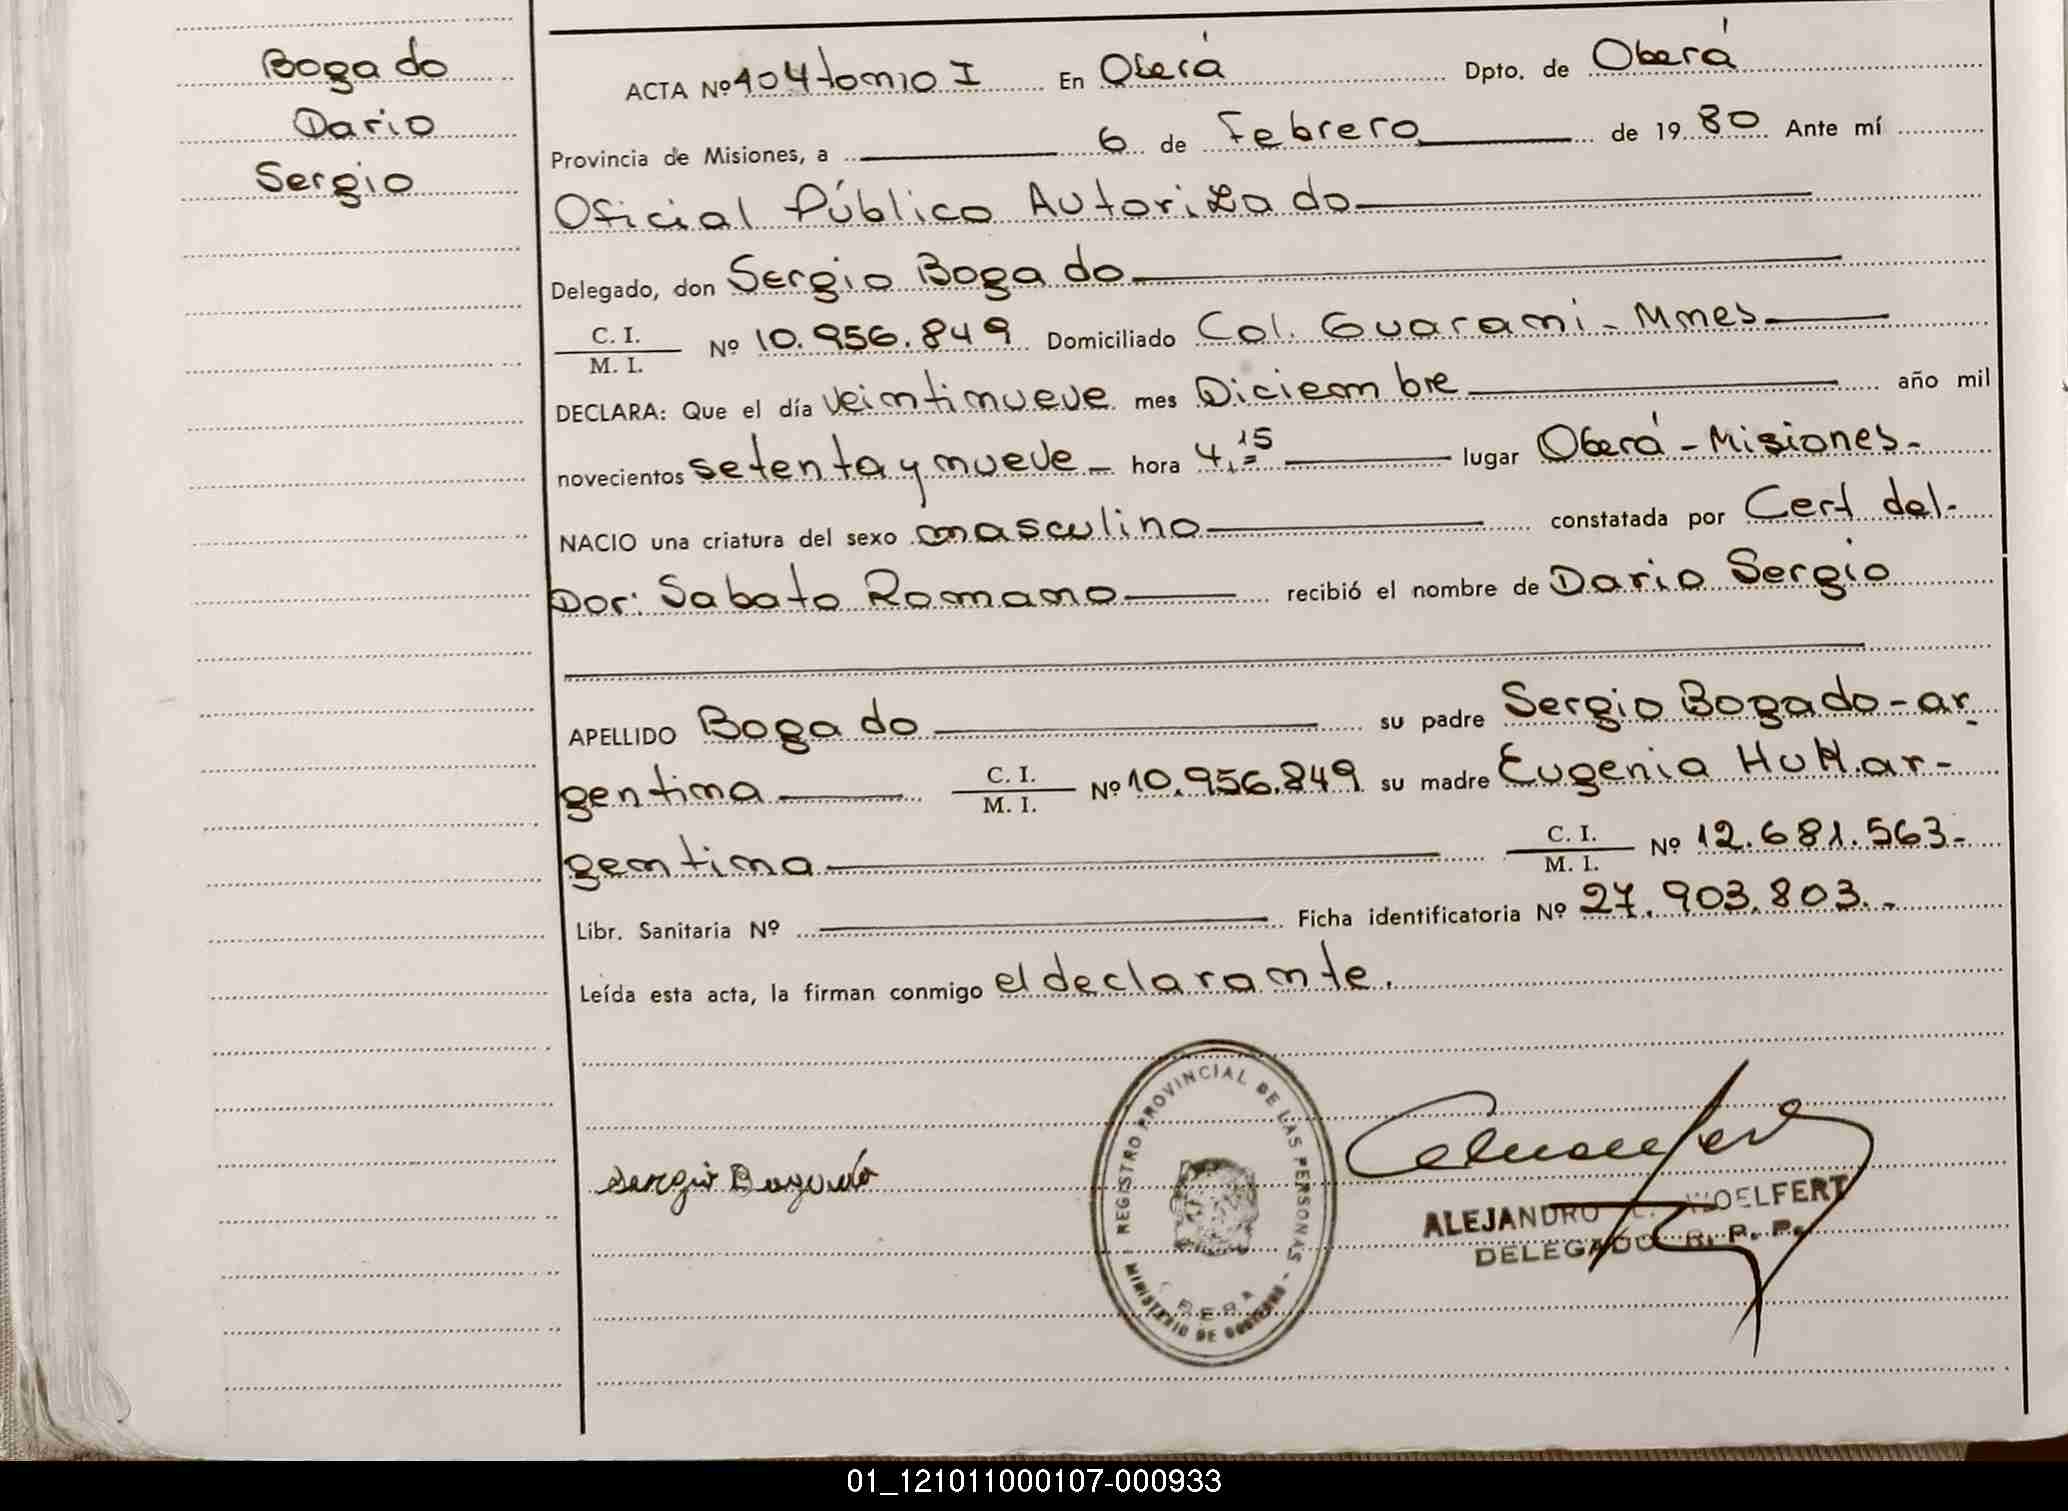 Bogado
Dario
Sergio
ACTA Nº 404 tomo I En Oberá Dpto. de Oberá
Provincia de Misiones, a 6 de Febrero de 1980 Ante mí
Oficial Público Autorizado
Delegado, don Sergio Bogado
C. I.
M. I. Nº 10.956.849 Domiciliado Col. Guarani - Mnes
DECLARA: Que el día veintinueve mes Diciembre año mil
novecientos setenta y nueve hora 4,15 lugar Oberá - Misiones -
NACIO una criatura del sexo masculino constatada por Cert del-
Dor: Sabato Romano recibió el nombre de Dario Sergio
APELLIDO Bogado su padre Sergio Bogado - ar
gentina C. I.
M. I. Nº 10.956.849 su madre Eugenia ar-
gentina C. I.
M. I. Nº 12.681.563-
Libr. Sanitaria Nº Ficha identificatoria Nº 27.903.803.-
Leída esta acta, la firman conmigo el declarante.
Sergio Bogado
REGISTRO PROVINCIAL DE LAS PERSONAS - MINISTERIO DE GOBIERNO
OBERA
ALEJANDRO WOELFERT
DELEGADO R. P. P.
01_121011000107-000933